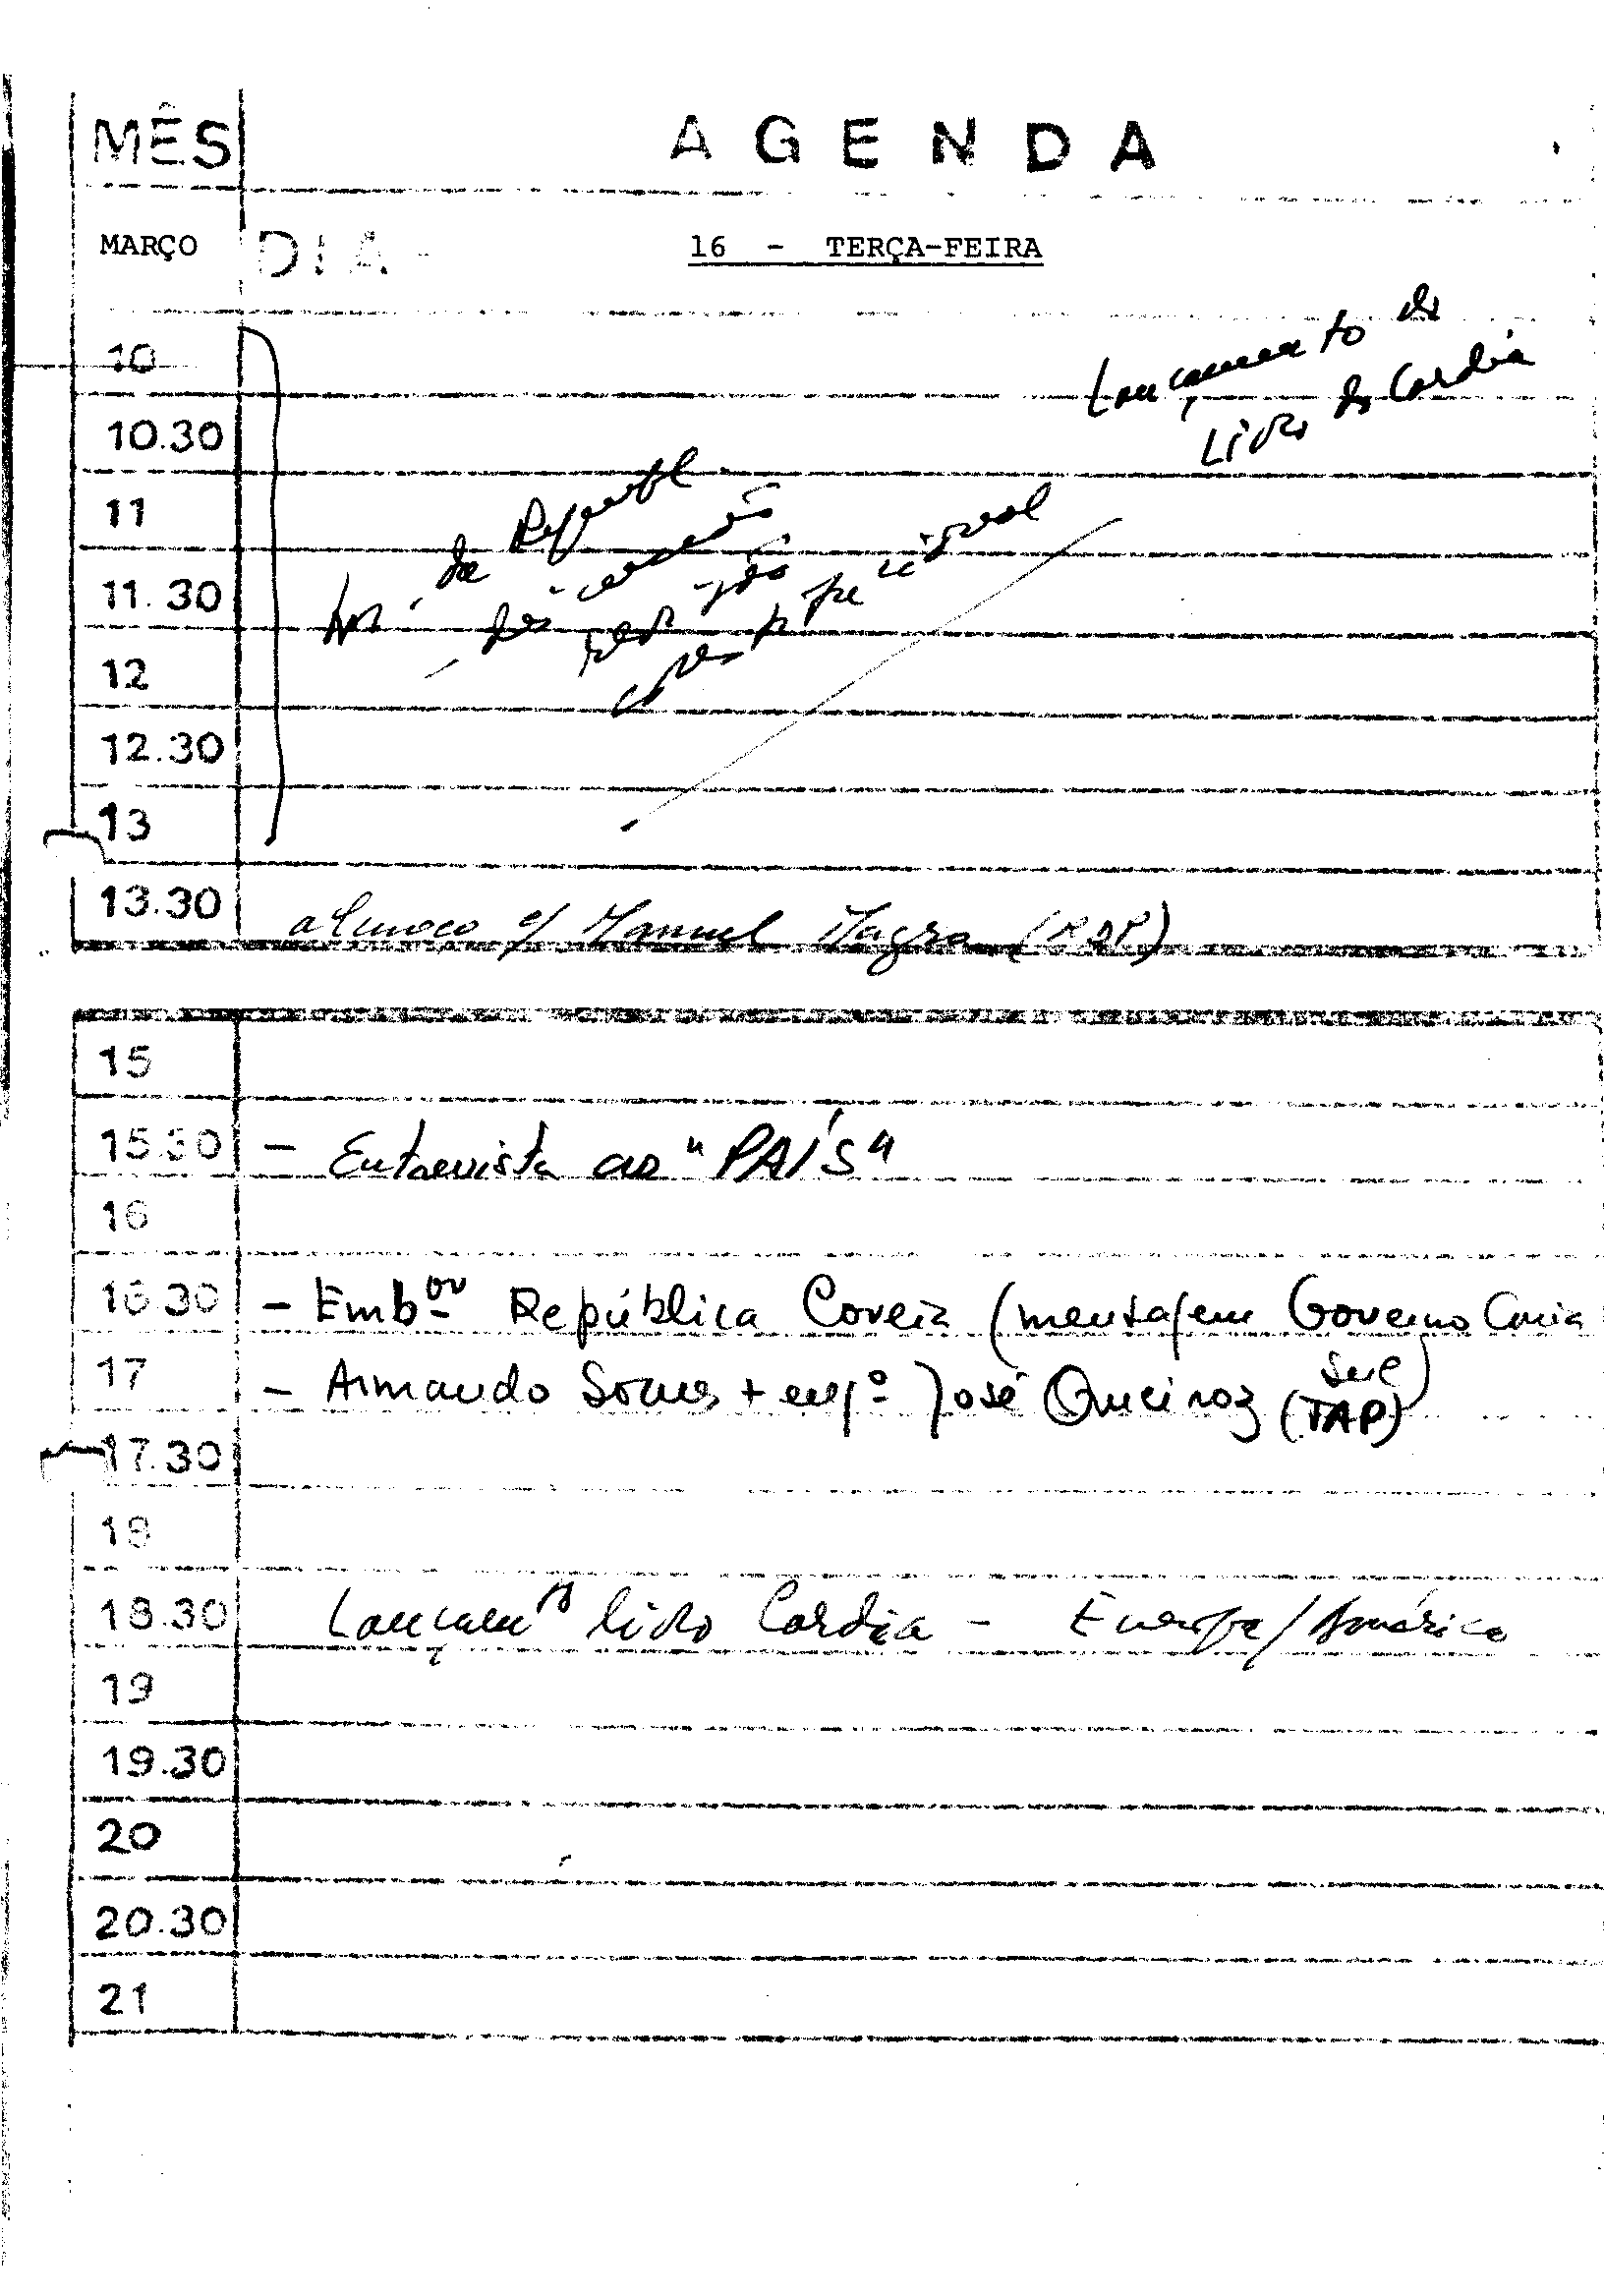 MÊS AGENDA
MARÇO DIA 16 - TERÇA-FEIRA
10
Lançamento do
Livro do Cardia
10.30
11
11.30
da
12
12.30
13
13.30 almoço c/ Manuel (RDP)
15
15.30 - Entrevista ao "PAÍS"
16
16.30 - Emb.or República Coreia (mensagem Governo Coreia
Sul)
17 - Armando + eng.º José Queiroz (TAP)
17.30
18
18.30 Lançamto livro Cardia - Europa/América
19
19.30
20
20.30
21